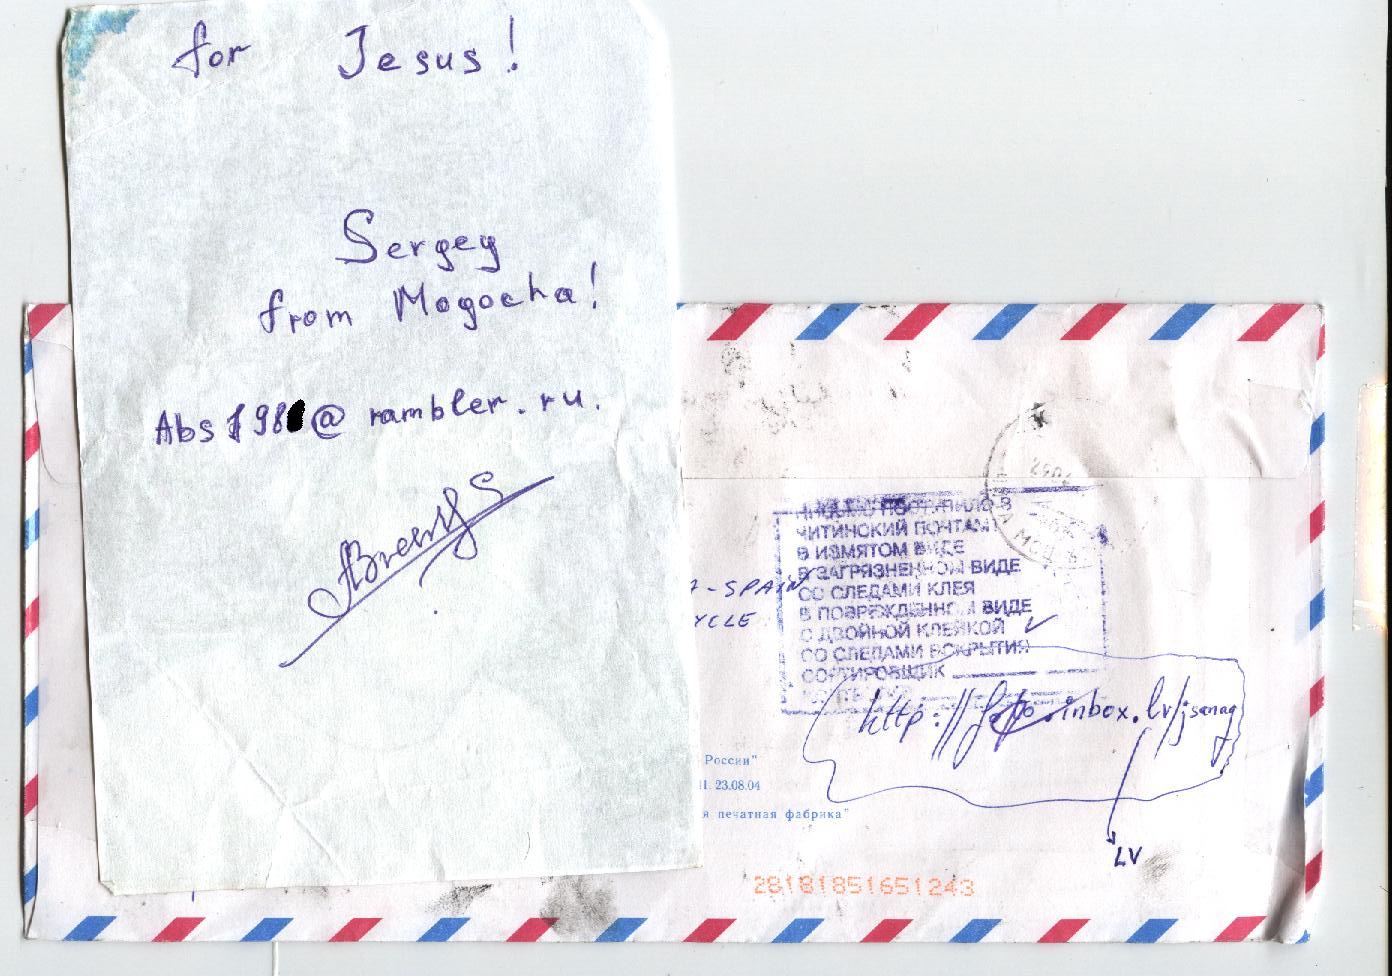 for Jesus!
Sergey
from Mogocha!
Abs198 @ rambler.ru.
ПИСЬМО ПОСТУПИЛО В
ЧИТИНСКИЙ ПОЧТАМТ
В ИЗМЯТОМ ВИДЕ
В ЗАГРЯЗНЕННОМ ВИДЕ
СО СЛЕДАМИ КЛЕЯ
В ПОВРЕЖДЕННОМ ВИДЕ
С ДВОЙНОЙ КЛЕЙКОЙ
СО СЛЕДАМИ ВСКРЫТИЯ
СОРТИРОВЩИК
-SPAIN
YCLE
http://foto.inbox.lv/jsanag
LV
России"
П. 23.08.04
я печатная фабрика"
28181851651243